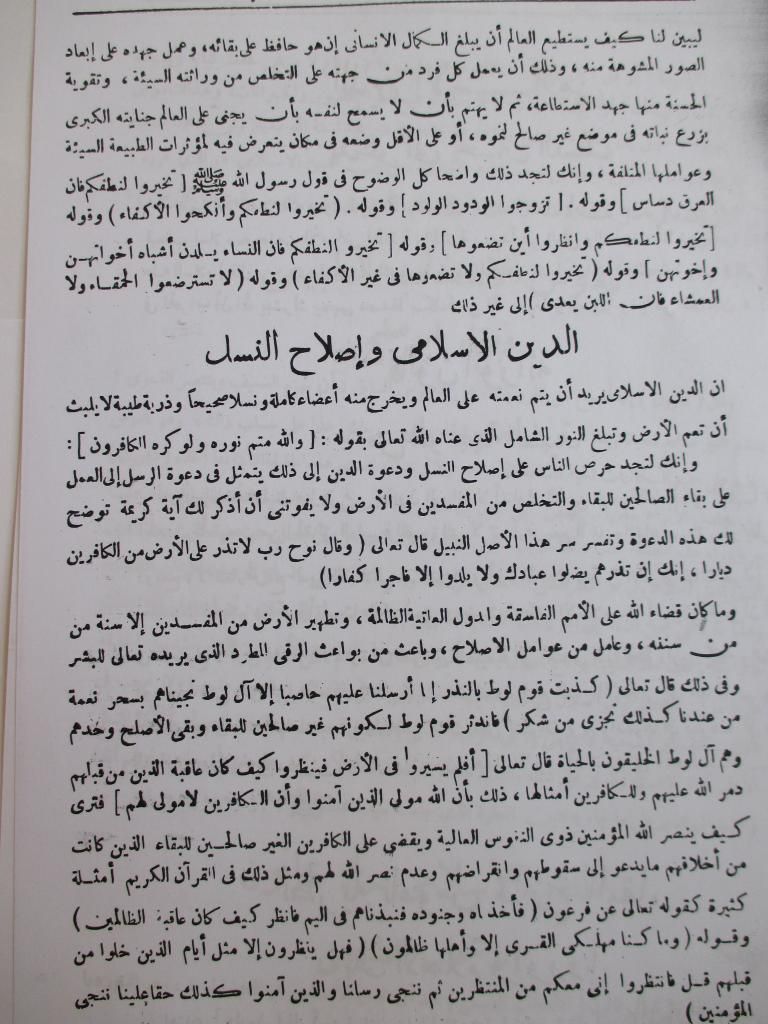 ليبين لنا كيف يستطيع العالم أن يبلغ الكمال الانسانى إن هو حافظ على بقائه، وعمل جهده على إبعاد
الصور المشوهة منه، وذلك أن يعمل كل فرد من جهته على التخلص من وراثته السيئة، وتقوية
الحسنة منها جهد الاستطاعة، ثم لا يهتم بأن لا يسمح لنفسه بأن يجنى على العالم جنايته الكبرى
بزرع نباته فى موضع غير صالح لنموه، أو على الأقل وضعه فى مكان يتعرض فيه لمؤثرات الطبيعة السيئة
وعواملها المتلفة، وإنك لتجد ذلك واضحا كل الوضوح فى قول رسول الله ﷺ [ تخيروا لنطفكم فان
العرق دساس ] وقوله. [ تزوجوا الودود الولود ] وقوله. ( تخيروا لنطفكم وأنكحوا الأكفاء ) وقوله
[ تخيروا لنطفكم وانظروا أين تضعوها ] وقوله [ تخيرو النطفكم فان النساء يلدن أشباه أخواتهن
وإخوتهن ] وقوله ( تخيروا لنطفكم ولا تضعوها فى غير الأكفاء ) وقوله ( لا تسترضعوا الحمقاء ولا
العمشاء فان اللبن يعدى ) إلى غير ذلك
الدين الاسلامى وإصلاح النسل
ان الدين الاسلامى يريد أن يتم نعمته على العالم ويخرج منه أعضاء كاملة ونسلا صحيحاً وذرية طيبة لا يلبث
أن تعم الأرض وتبلغ النور الشامل الذى عناه الله تعالى بقوله : [ والله متم نوره ولو كره الكافرون ] :
وإنك لتجد حرص الناس على إصلاح النسل ودعوة الدين إلى ذلك يتمثل فى دعوة الرسل إلى العمل
على بقاء الصالحين للبقاء والتخلص من المفسدين فى الأرض ولا يفوتنى أن أذكر لك آية كريمة توضح
لك هذه الدعوة وتفسر سر هذا الأصل النبيل قال تعالى ( وقال نوح رب لا تذر على الأرض من الكافرين
ديارا ، إنك إن تذرهم يضلوا عبادك ولا يلدوا إلا فاجرا كفارا )
وما كان قضاء الله على الأمم الفاسقة والدول العاتية الظالمة ، وتطهير الأرض من المفسدين إلا سنة من
من سننه ، وعامل من عوامل الاصلاح ، وباعث من بواعث الرقى المطرد الذى يريده تعالى للبشر
وفى ذلك قال تعالى ( كذبت قوم لوط بالنذر إنا أرسلنا عليهم حاصبا إلا آل لوط نجيناهم بسحر نعمة
من عندنا كذلك نجزى من شكر ) فاندثر قوم لوط لكونهم غير صالحين للبقاء وبقى الأصلح وحدهم
وهم آل لوط الخليقون بالحياة قال تعالى [ أفلم يسيروا فى الأرض فينظروا كيف كان عاقبة الذين من قبلهم
دمر الله عليهم وللكافرين أمثالها ، ذلك بأن الله مولى الذين آمنوا وأن الكافرين لا مولى لهم ] فترى
كيف ينصر الله المؤمنين ذوى النفوس العالية ويقضى على الكافرين الغير صالحين للبقاء الذين كانت
من أخلاقهم ما يدعو إلى سقوطهم وانقراضهم وعدم نصر الله لهم ومثل ذلك فى القرآن الكريم أمثلة
كثيرة كقوله تعالى عن فرعون ( فأخذناه وجنوده فنبذناهم فى اليم فانظر كيف كان عاقبة الظالمين )
وقوله ( وما كنا مهلكى القرى إلا وأهلها ظالمون ) ( فهل ينظرون إلا مثل أيام الذين خلوا من
قبلهم قل فانتظروا إنى معكم من المنتظرين ثم ننجى رسلنا والذين آمنوا كذلك حقا علينا ننجى
المؤمنين )